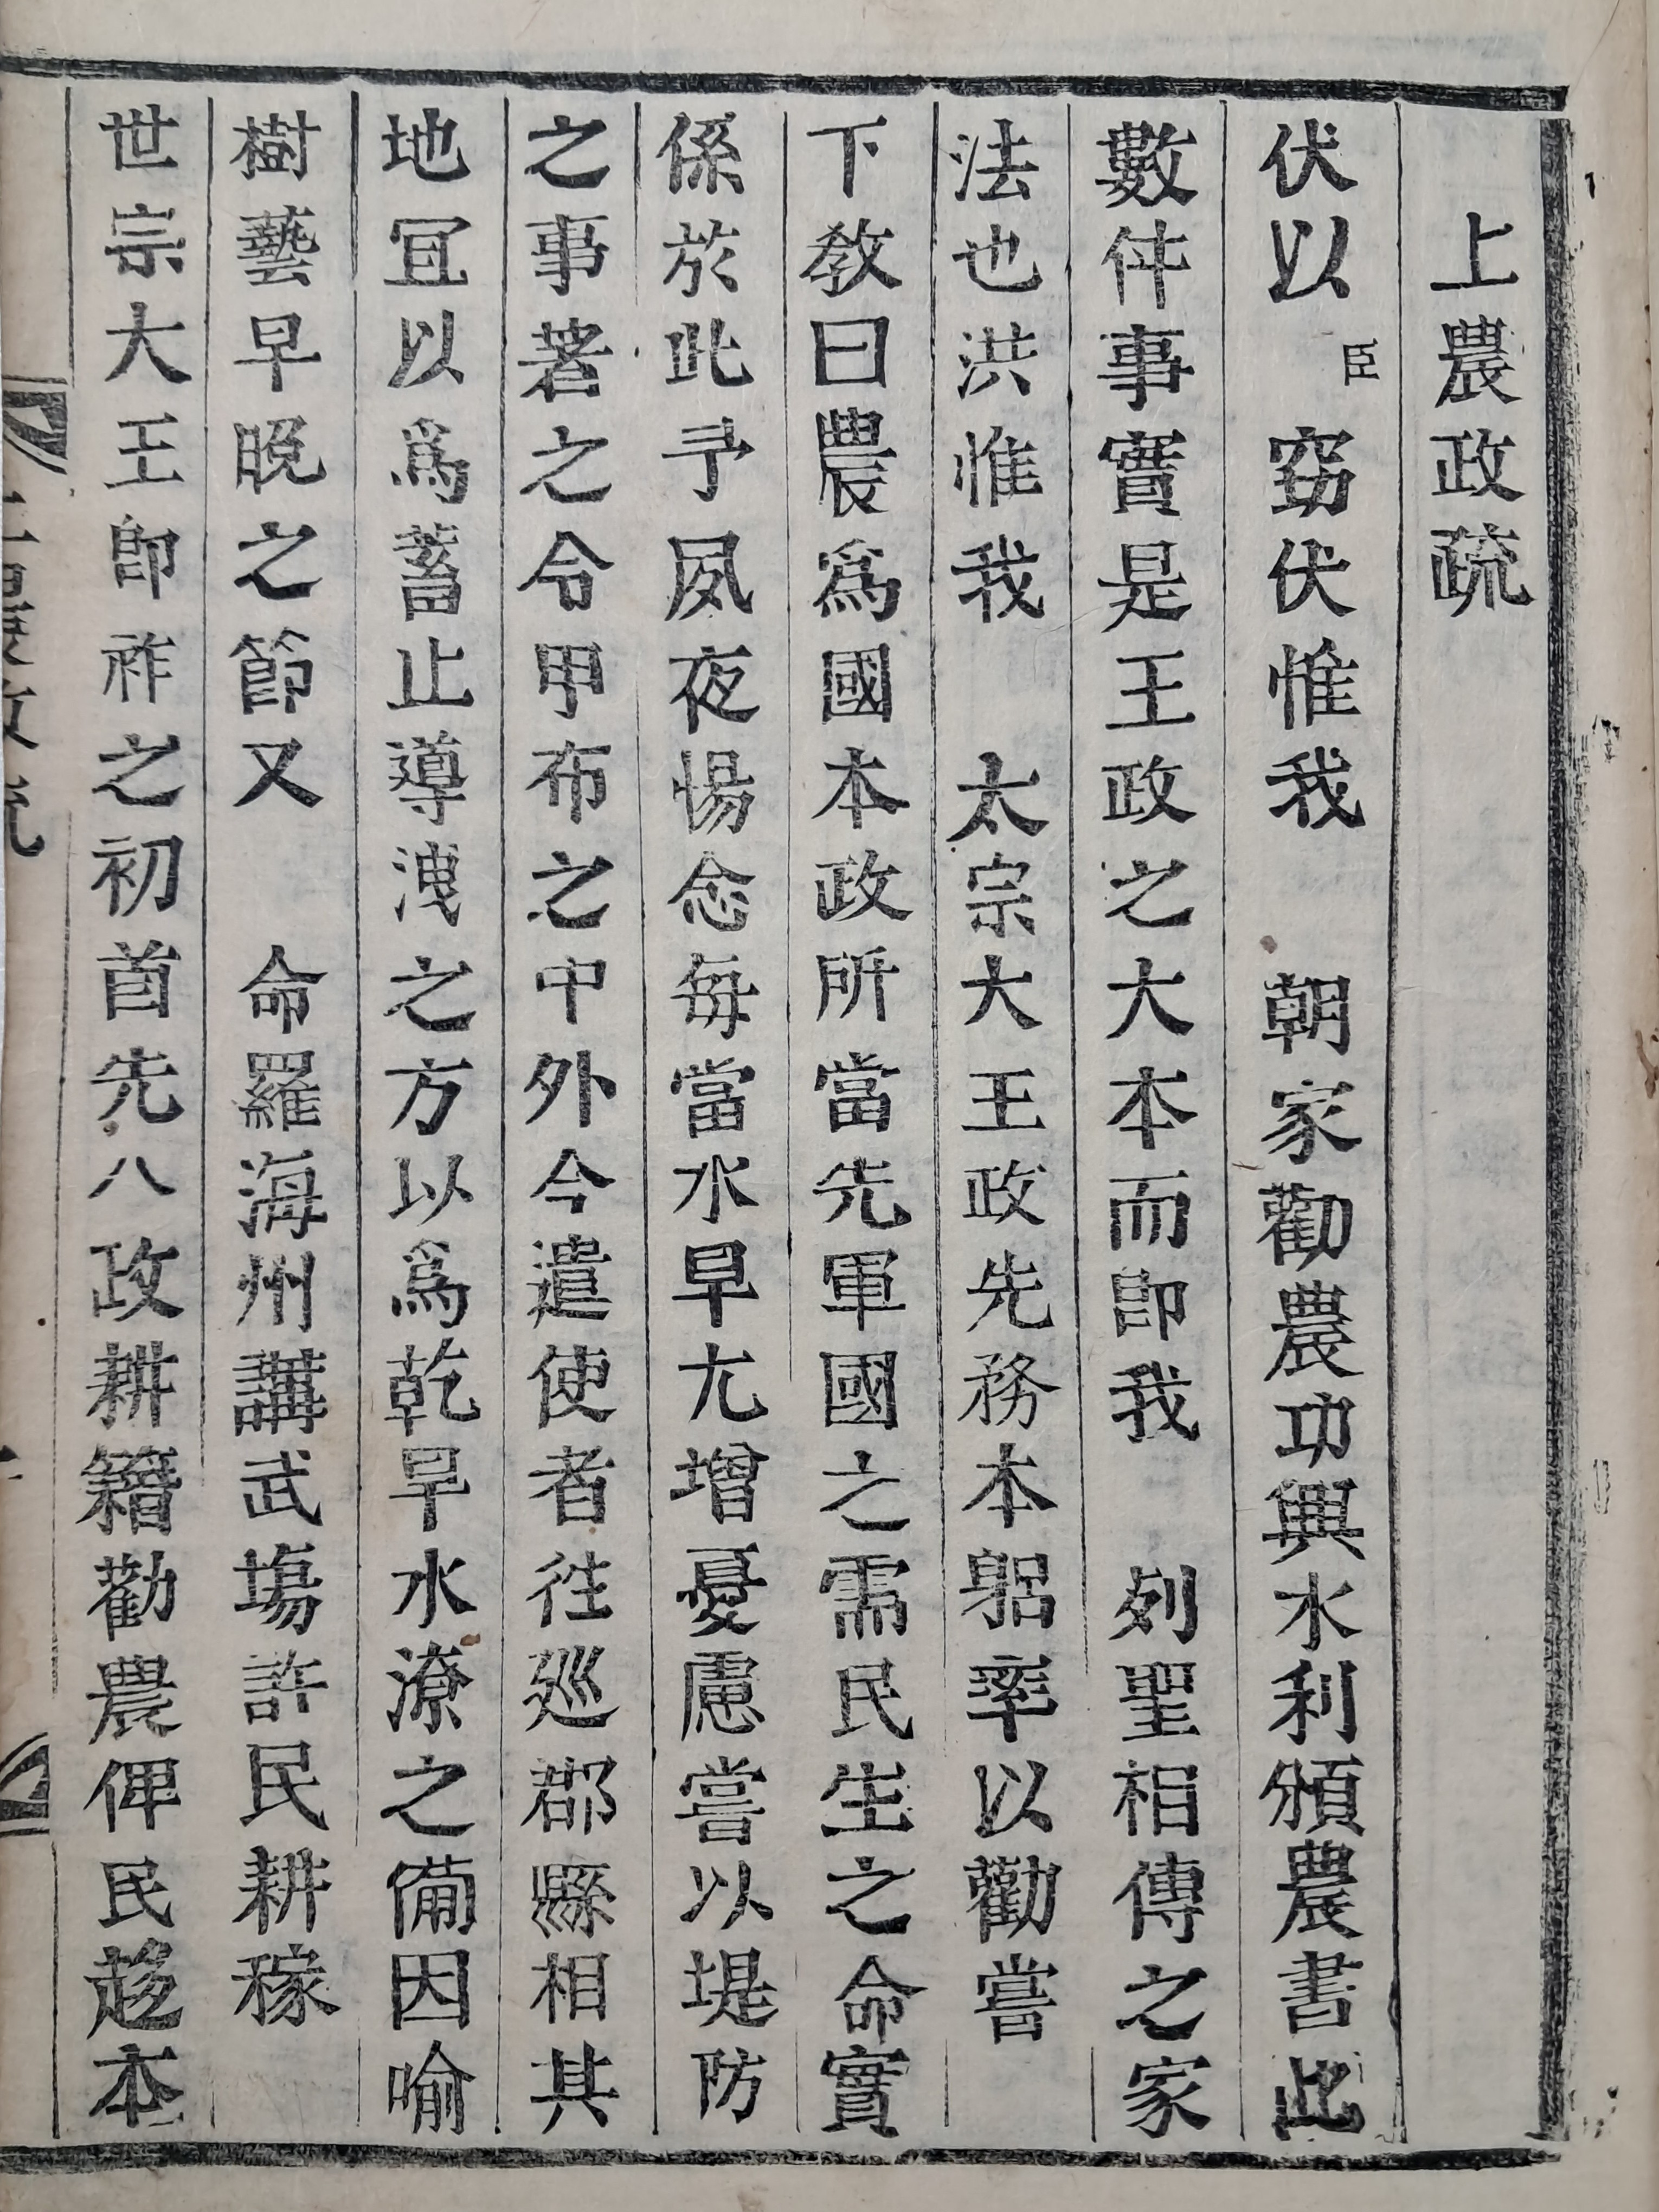 上農政疏
伏以臣竊伏惟我 朝家勸農功興水利頒農書此
數件事實是王政之大本而卽我 列聖相傳之家
法也洪惟我 太宗大王政先務本躬率以勸嘗
下敎曰農爲國本政所當先軍國之需民生之命實
係於此予夙夜惕念每當水旱尤增憂慮嘗以堤防
之事著之令甲布之中外今遣使者往廵郡縣相其
地宜以爲蓄止導洩之方以爲乾旱水潦之備因喩
樹藝早晩之節又 命羅海州講武塲許民耕稼
世宗大王卽祚之初首先八政耕籍勸農俾民趍本